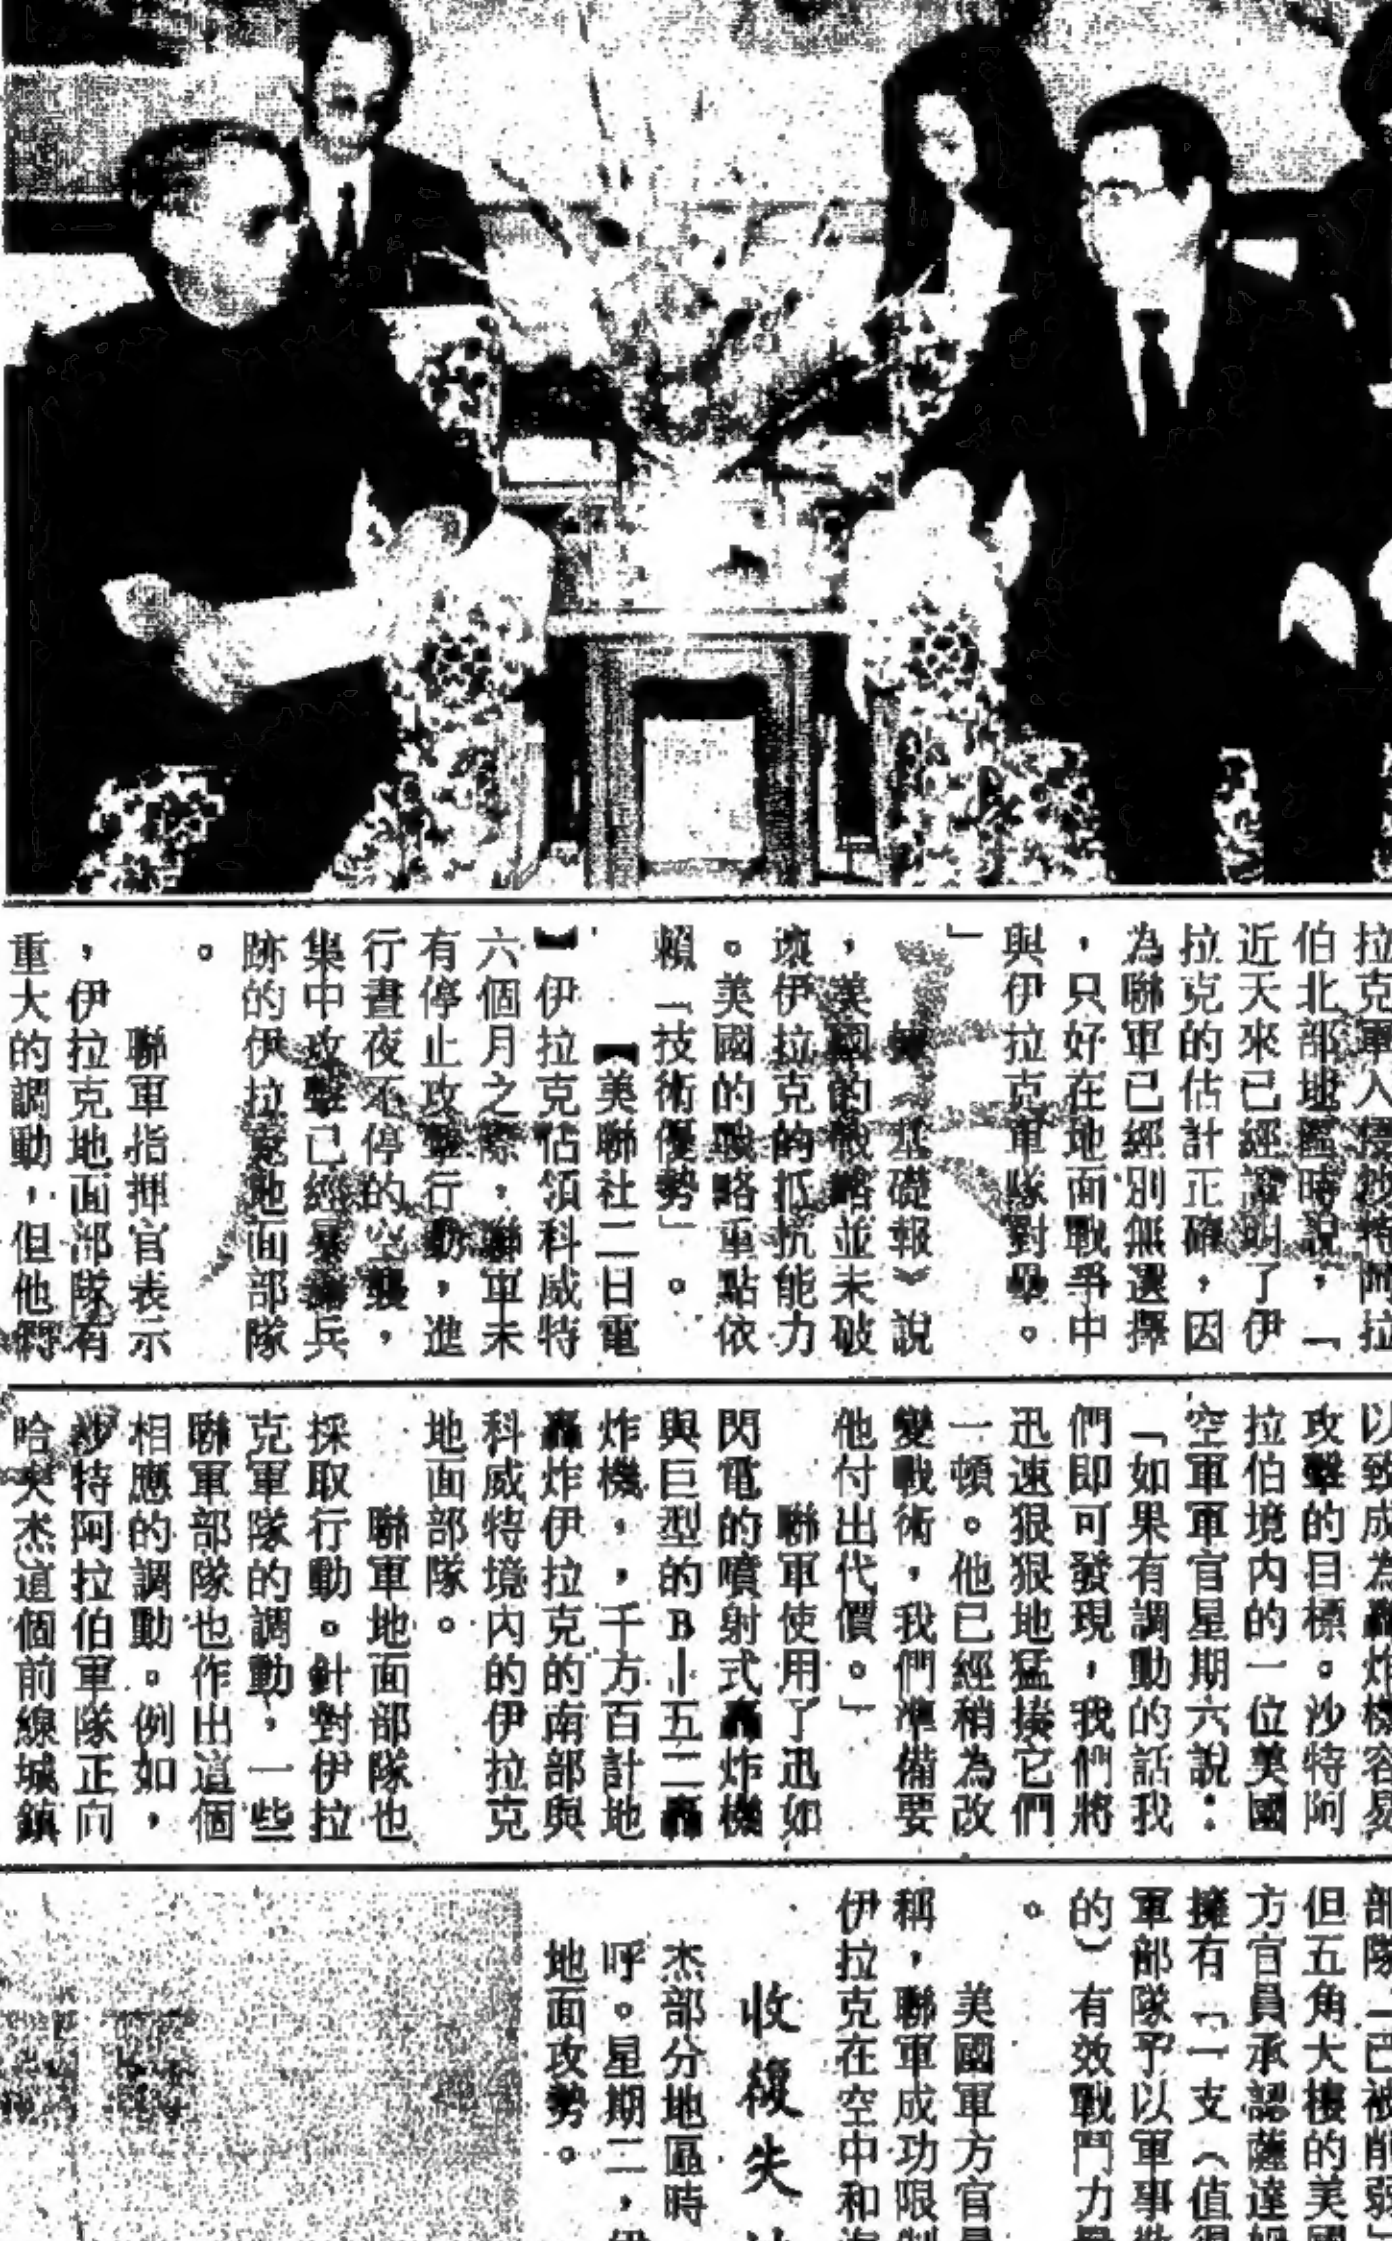 拉克軍入侵沙特阿拉
伯北部地區時說，「
近天來已經證明了伊
拉克的估計正確，因
為聯軍已經別無選擇
，只好在地面戰爭中
與伊拉克軍隊對壘。
」
據《基礎報》說
，美國的戰略並未破
壞伊拉克的抵抗能力
。美國的戰略重點依
賴「技術優勢」。
【美聯社二日電
】伊拉克佔領科威特
六個月之際，聯軍未
有停止攻擊行動，進
行晝夜不停的空襲，
集中攻擊已經暴露兵
跡的伊拉克地面部隊
。
聯軍指揮官表示
，伊拉克地面部隊有
重大的調動，但他們
以致成為轟炸機容易
攻擊的目標。沙特阿
拉伯境內的一位美國
空軍軍官星期六說：
「如果有調動的話我
們即可發現，我們將
迅速狠狠地猛揍它們
一頓。他已經稍為改
變戰術，我們準備要
他付出代價。」
聯軍使用了迅如
閃電的噴射式轟炸機
與巨型的B－五二轟
炸機，，千方百計地
轟炸伊拉克的南部與
科威特境內的伊拉克
地面部隊。
聯軍地面部隊也
採取行動。針對伊拉
克軍隊的調動，一些
聯軍部隊也作出這個
相應的調動。例如，
沙特阿拉伯軍隊正向
哈夫杰這個前線城鎮
部隊「已被削弱」
但五角大樓的美國
方官員承認薩達姆
擁有「一支（值得
軍部隊予以軍事
的）有效戰鬥力量
。
美國軍方官員
稱，聯軍成功限制
伊拉克在空中和海
收復失
杰部分地區時
呼。星期二，伊
地面攻勢。